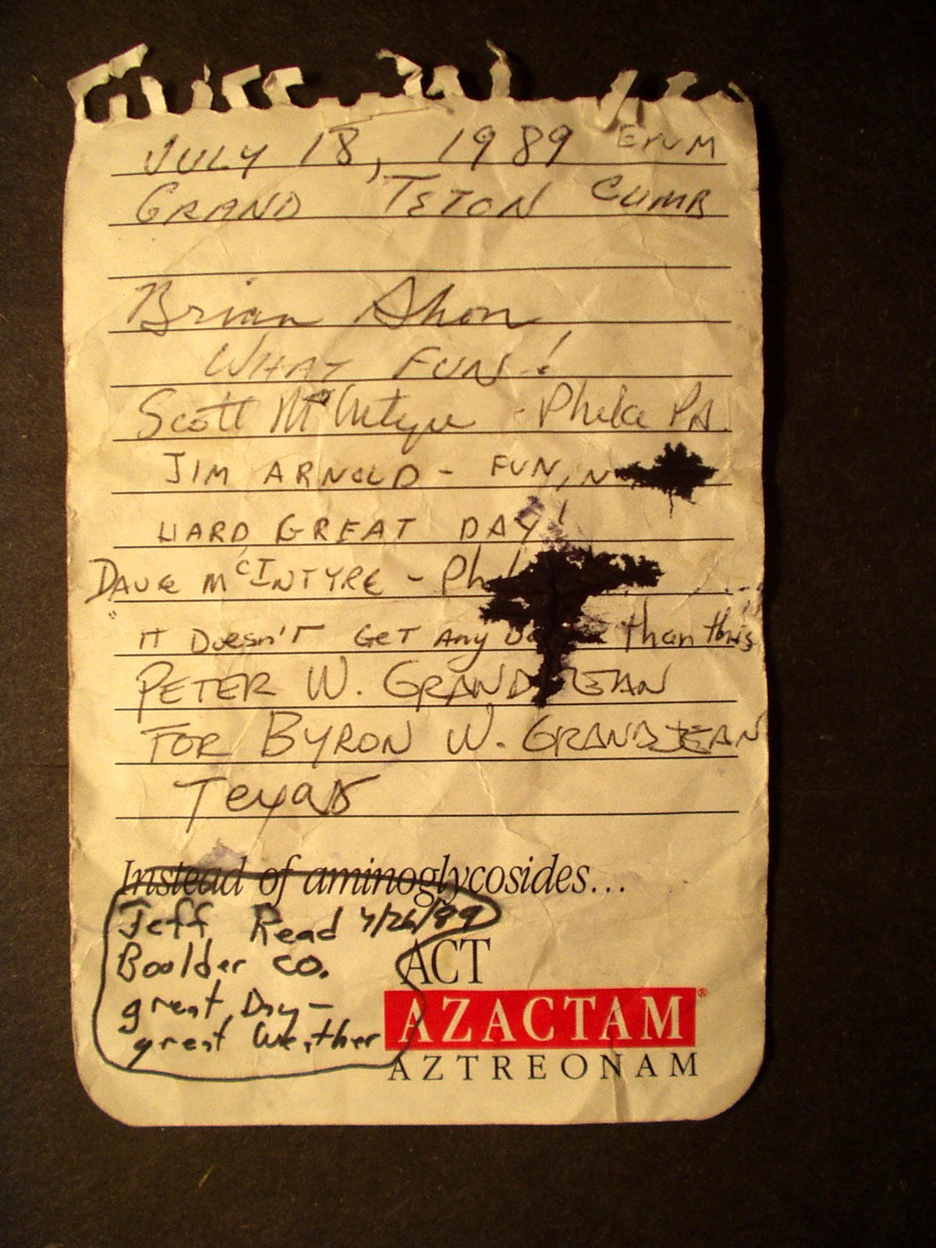 JULY 18, 1989 EXUM
GRAND TETON CLIMB
Brian Shon
WHAT FUN!
Scott McIntyre - Phila PA.
JIM ARNOLD - FUN,
HARD GREAT DAY!
DAVE McINTYRE -
"IT Doesn't GeT Any than this
PETER W. GRANDJEAN
FOR BYRON W. GRANDJEAN
Texas
Instead of aminoglycosides...
Jeff Read 7/26/89
Boulder CO.
great Day -
great Weather
ACT
AZACTAM®
AZTREONAM